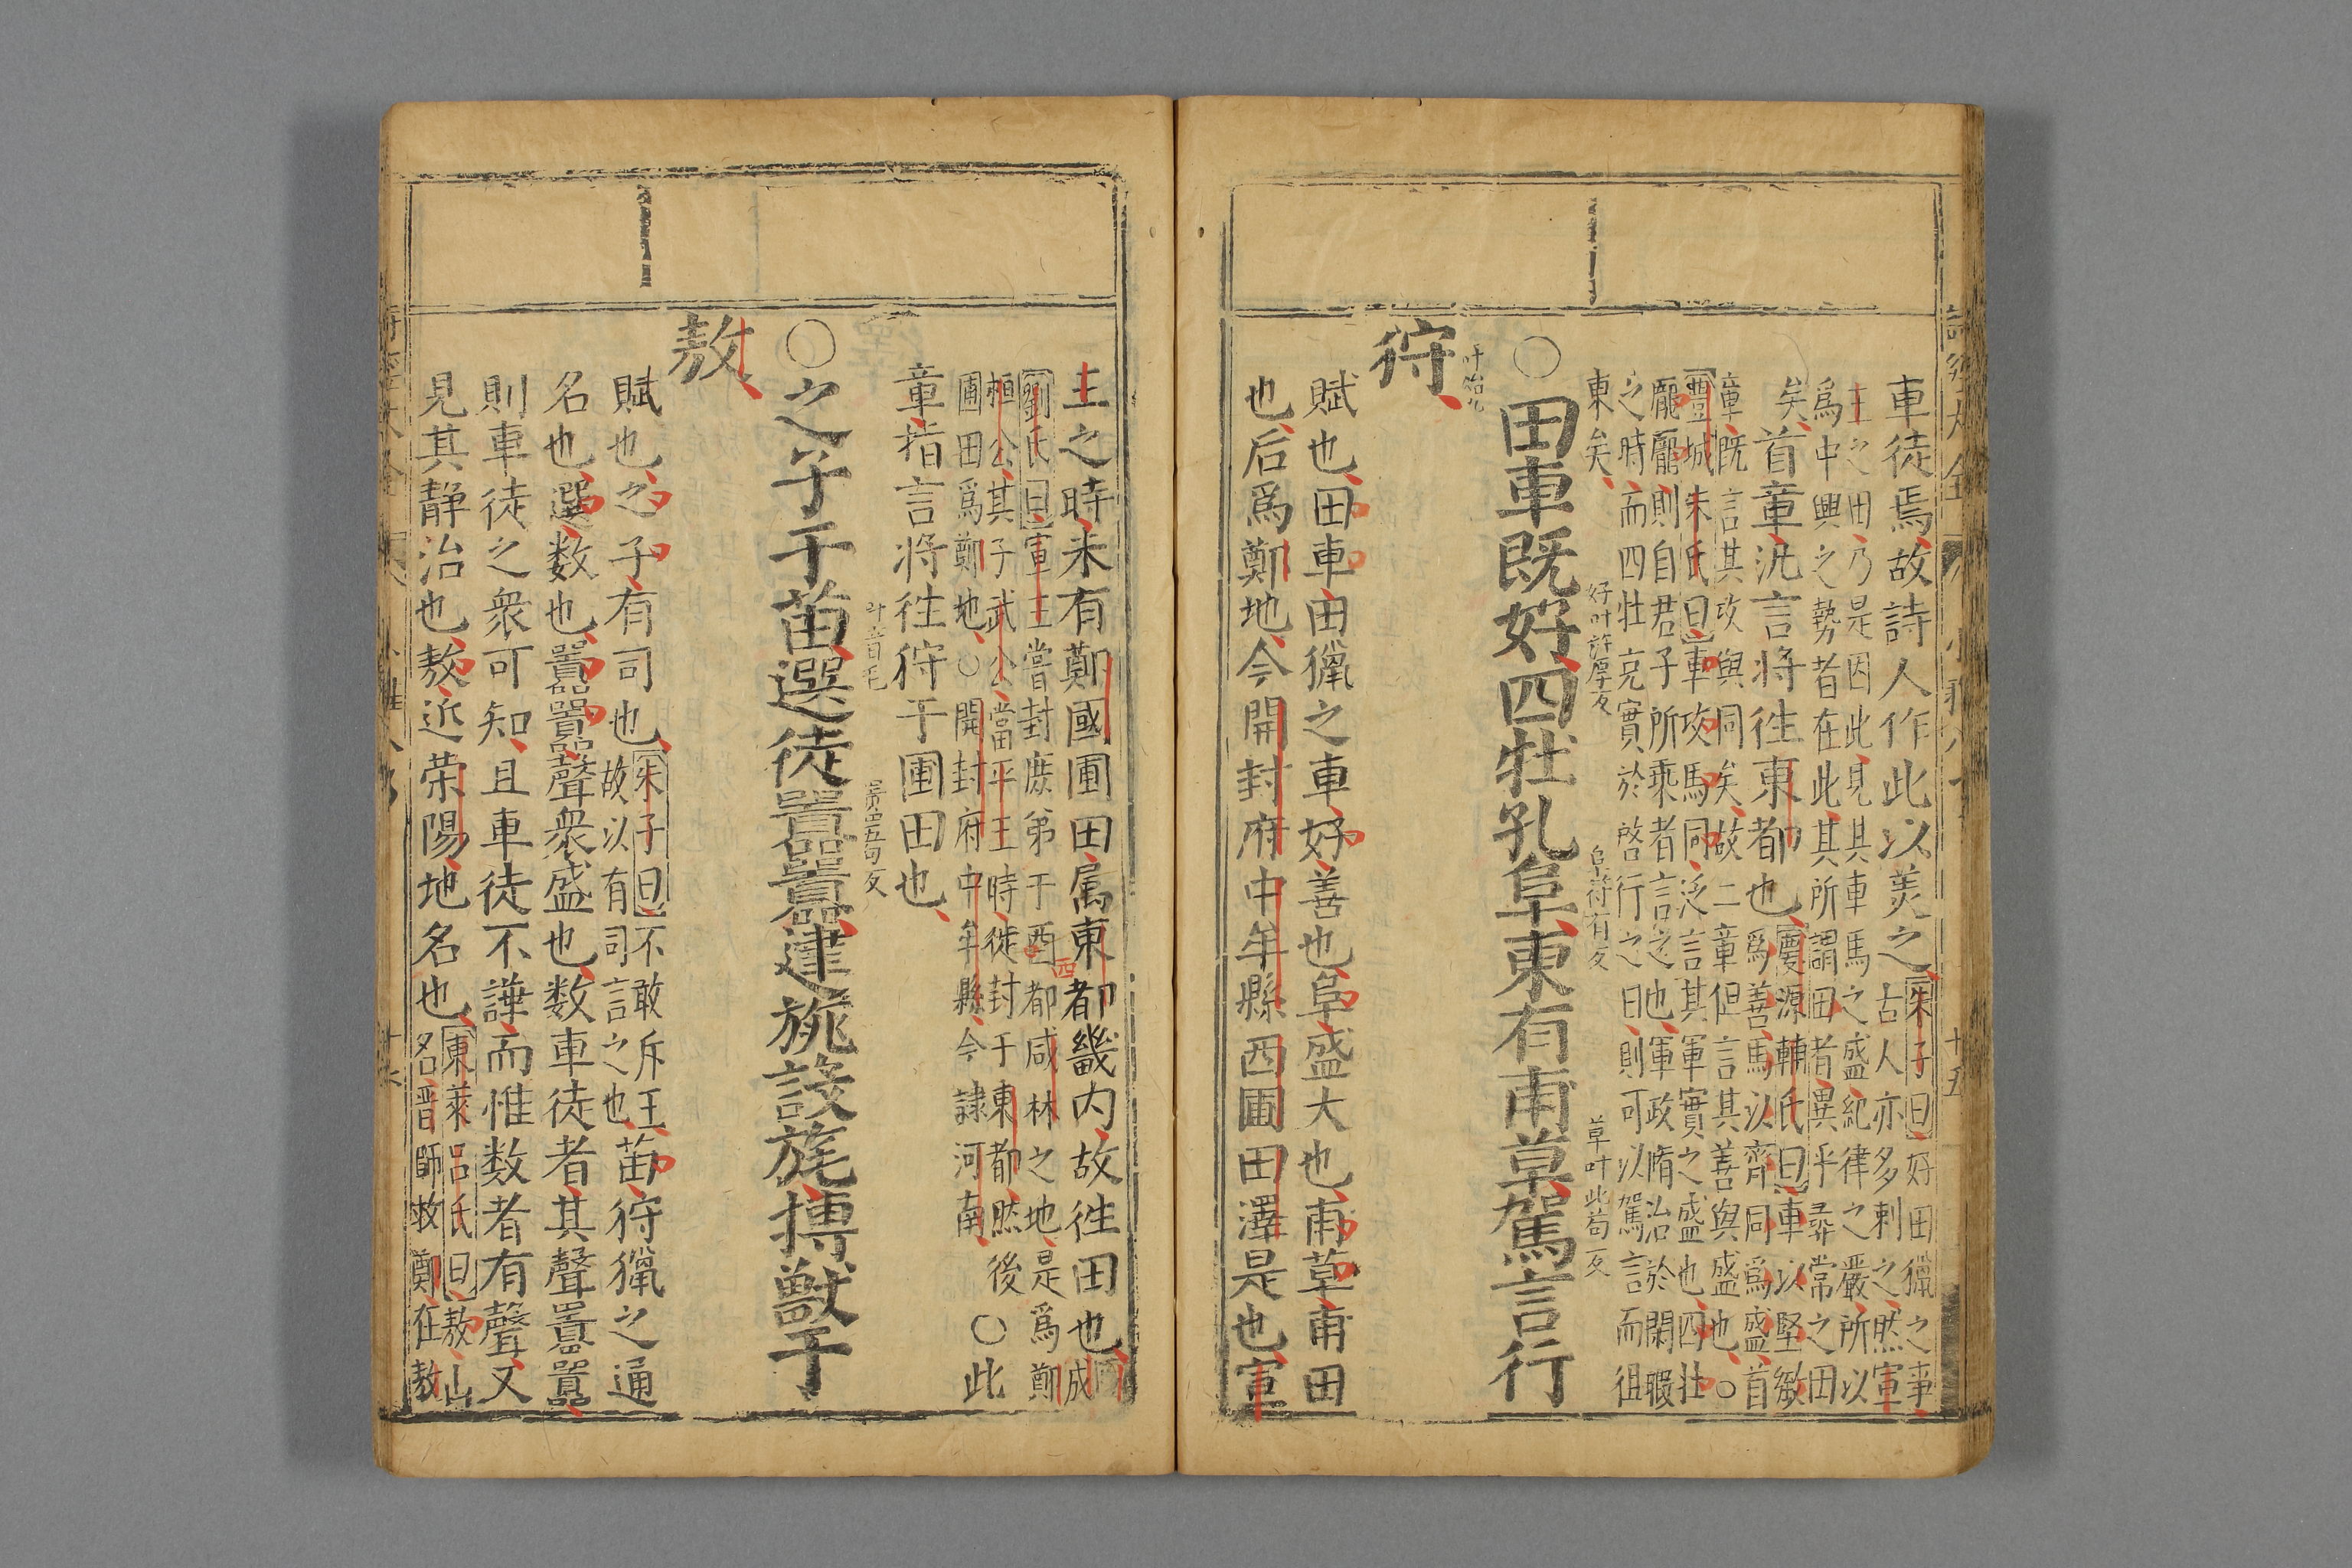 車徒焉故詩人作此以美之朱子曰好田獵之事
古人亦多刺之然宣
王之田乃是因此見其車馬之盛紀律之嚴所以
爲中興之勢者在此其所謂田者異乎尋常之田
矣首章汎言將徃東都也慶源輔氏曰車以堅緻
爲善馬以齊同爲盛首
章既言其攻與同矣故二章但言其善與盛也○
豐城朱氏曰車攻馬同泛言其軍實之盛也四牡
龐龐則自君子所乘者言之也軍政脩治於閑暇
之時而四牡克實於啓行之日則可以駕言而徂
東矣
○田車既好好叶許厚反四牡孔阜阜符有反東有甫草草叶此苟反駕言行
狩叶始九
賦也田車田獵之車好善也阜盛大也甫草甫田
也后爲鄭地今開封府中牟縣西圃田澤是也宣
王之時未有鄭國圃田属東都畿內故徃田也
劉氏曰宣王嘗封庶弟于西都咸林之地是爲鄭
桓公其子武公當平王時徙封于東都然後
圃田爲鄭地○開封府中牟縣今隷河南○此
章指言將徃狩于圃田也
○之子于苗叶音毛選徒囂囂囂五句反建旐設旄搏獸于
敖
賦也之子有司也朱子曰不敢斥王
故以有司言之也苗狩獵之通
名也選数也囂囂聲衆盛也数車徒者其聲囂囂
則車徒之衆可知且車徒不譁而惟数者有聲又
見其静治也敖近荣陽地名也東萊呂氏曰敖山
名晋師救鄭在敖